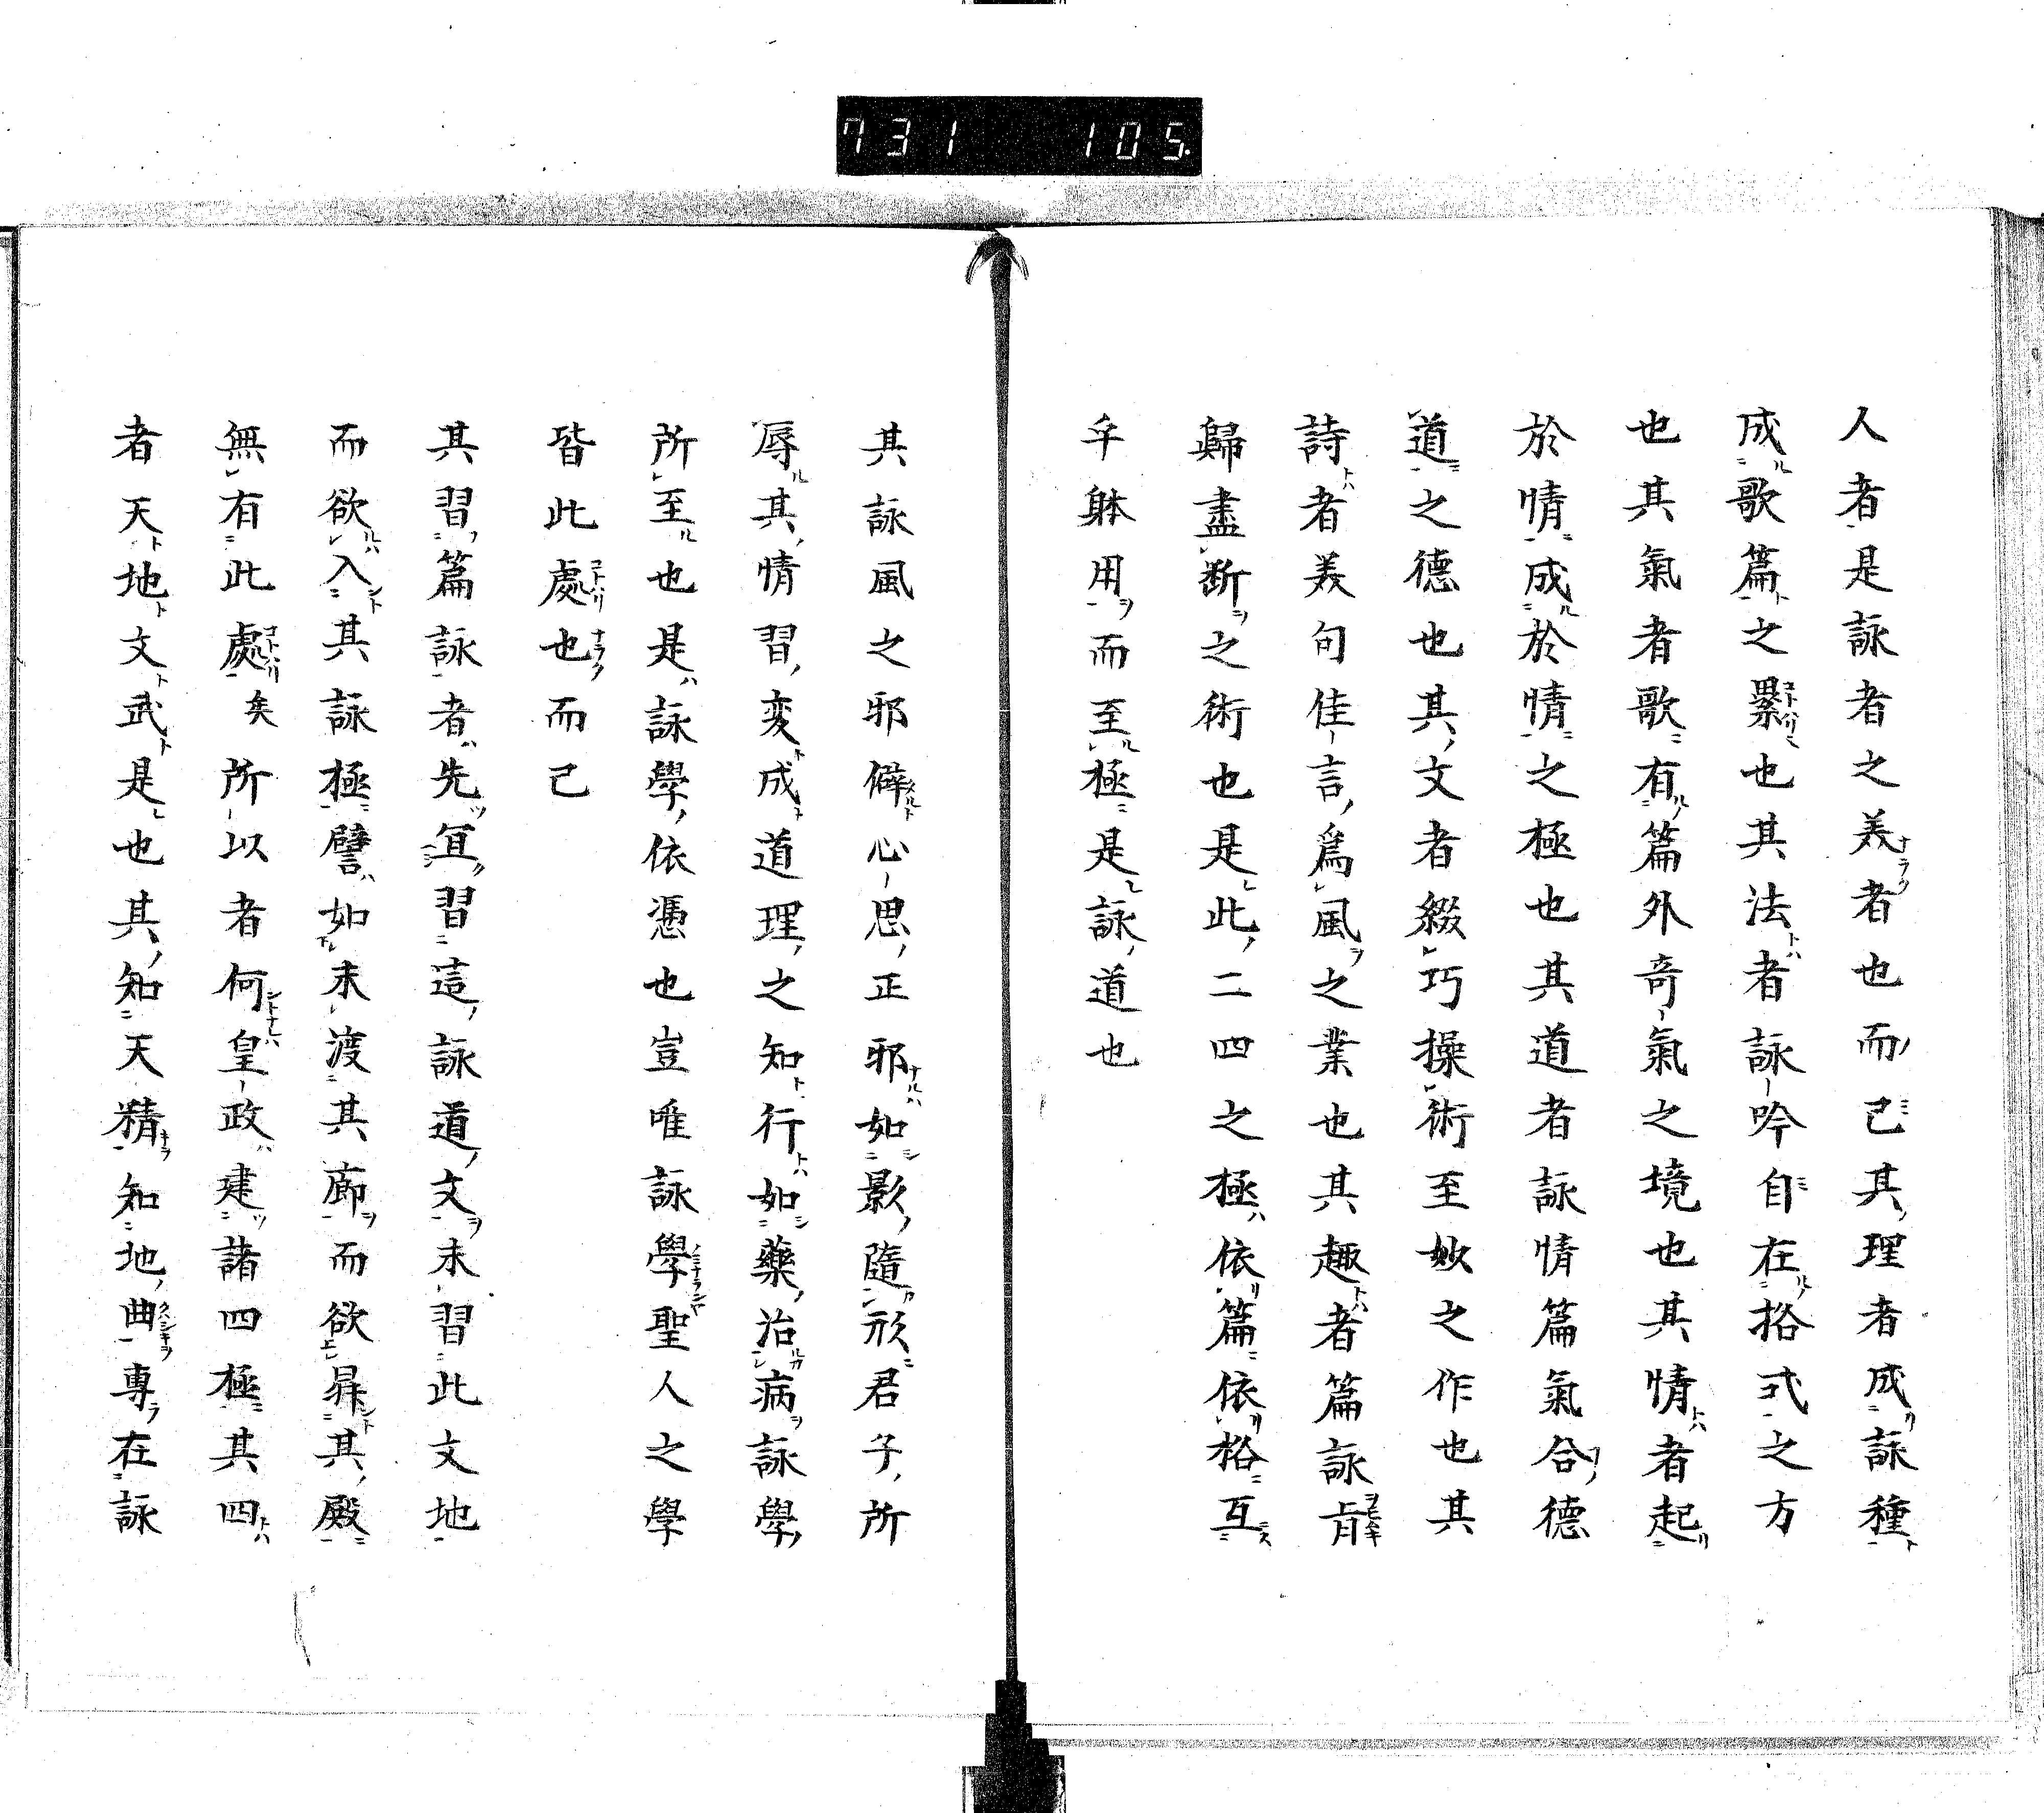 731 105
人者是詠者之美者也而已其理者成詠種
成歌篇之累也其法者詠吟自在挌弐之方
也其氣者歌有篇外奇氣之境也其情者起
於情成於情之極也其道者詠情篇氣合德
道之德也其文者綴巧操術至妙之作也其
詩者美句佳言爲風之業也其趣者篇詠肯
歸盡断之術也是此二四之極依篇依挌互
躰用而至極是詠道也
其詠風之邪僻心思正邪如影隨形君子所
辱其情習変成道理之知行如藥治病詠學
所至也是詠學依憑也豈唯詠學聖人之學
皆此處也而已
其習篇詠者先宜習這詠道文未習此文地
而欲入其詠極譬如未渡其廊而欲昇其殿
無有此處矣所以者何皇政建諸四極其四
者天地文武是也其知天精知地曲專在詠